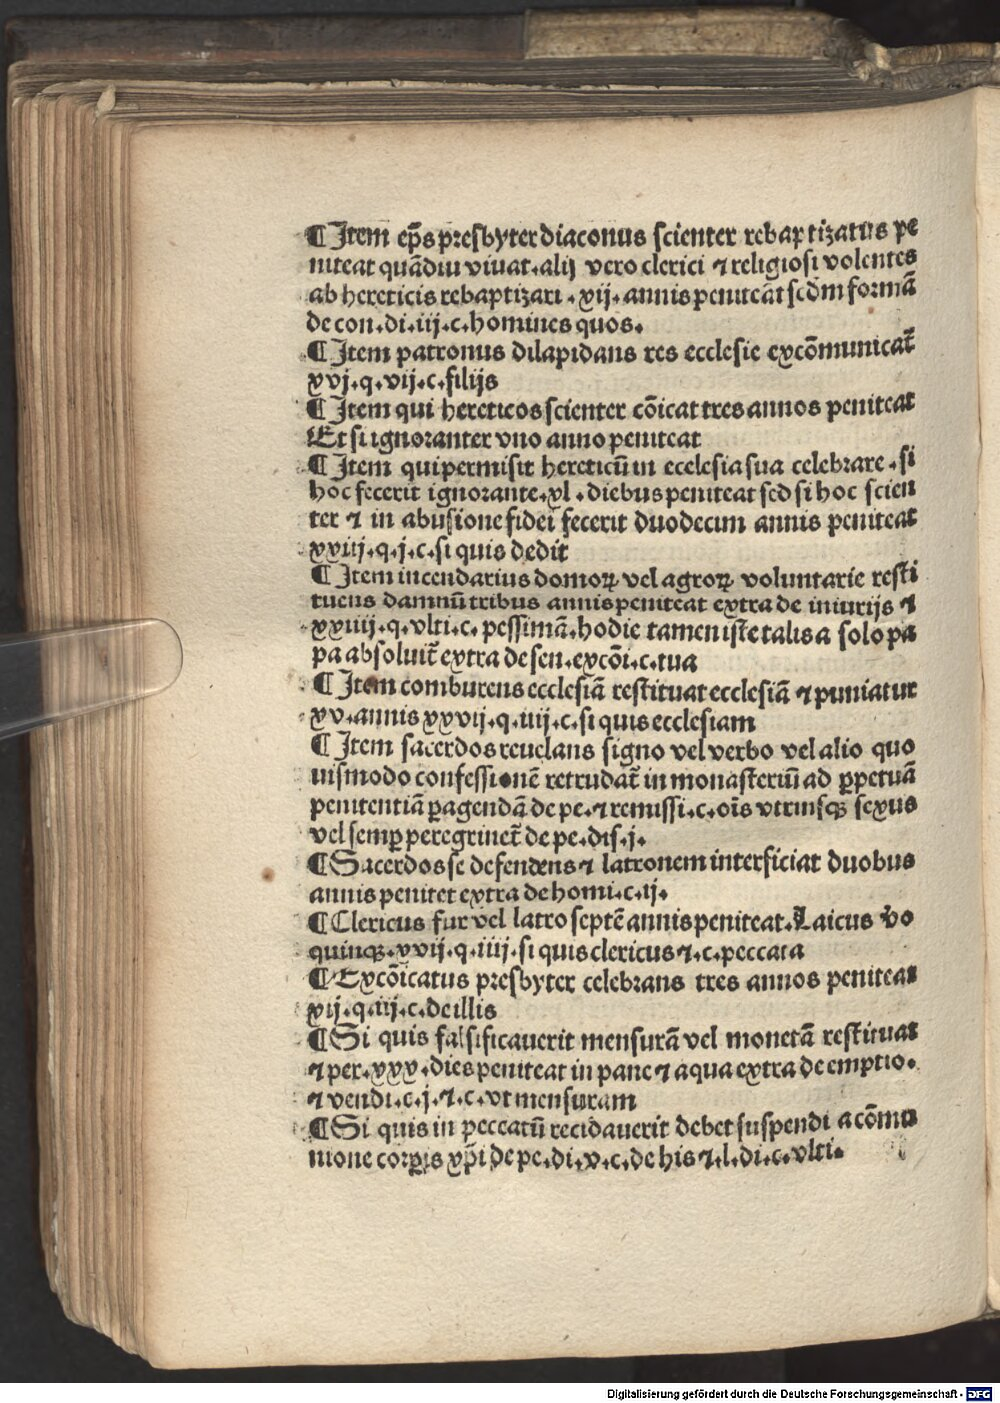 ¶ Item ep̃s presbyter diaconus scienter rebaptizatus pe
niteat quādiu viuat.alij vero clerici ⁊ religiosi volentes
ab hereticis rebaptizari.xij.annis peniteāt scd̄m formā
de con.di.iij.c.homines quos.
¶ Item patronus dilapidans res ecclesie excōmunicat̄
xvj.q.vij.c.filijs
¶ Item qui hereticos scienter cōicat tres annos peniteat
Et si ignoranter vno anno peniteat
¶ Item qui permisit hereticū in ecclesia sua celebrare.si
hoc fecerit ignorante.xl.diebus peniteat sed si hoc scien
ter ⁊ in abusione fidei fecerit duodecim annis peniteat
xxiiij.q.j.c.si quis dedit
¶ Item incendarius domoꝝ vel agroꝝ voluntarie resti
tuens damnū tribus annis peniteat extra de iniurijs ⁊
xxiiij.q.vlti.c.pessimā.hodie tamen iste talis a solo pa
pa absoluit̄ extra de sen.excōi.c.tua
¶ Item comburens ecclesiā restituat ecclesiā ⁊ puniatur
xv.annis xxvij.q.iiij.c.si quis ecclesiam
¶ Item sacerdos reuelans signo vel verbo vel alio quo
uismodo confessionē retrudat̄ in monasteriū ad ꝑpetuā
penitentiā ꝑagendā de pe.⁊ remissi.c.oīs vtriusqꝫ sexus
vel semꝑ peregrinet̄ de pe.dis.j.
¶ Sacerdos se defendens ⁊ latronem interficiat duobus
annis penitet extra de homi.c.ij.
¶ Clericus fur vel latro septē annis peniteat.Laicus vo
quinqꝫ.xvij.q.iiij.si quis clericus ⁊.c.peccata
¶ Excōicatus presbyter celebrans tres annos peniteat
xij.q.iij.c.de illis
¶ Si quis falsificauerit mensurā vel monetā restituat
⁊ per.xxx.dies peniteat in pane ⁊ aqua extra de emptio.
⁊ vendi.c.j.⁊.c.vt mensuram
¶ Si quis in peccatū recidauerit debet suspendi a cōmu
nione corꝑis xp̄i de pe.di.v.c.de his ⁊.l.di.c.vlti.
Digitalisierung gefördert durch die Deutsche Forschungsgemeinschaft - DFG